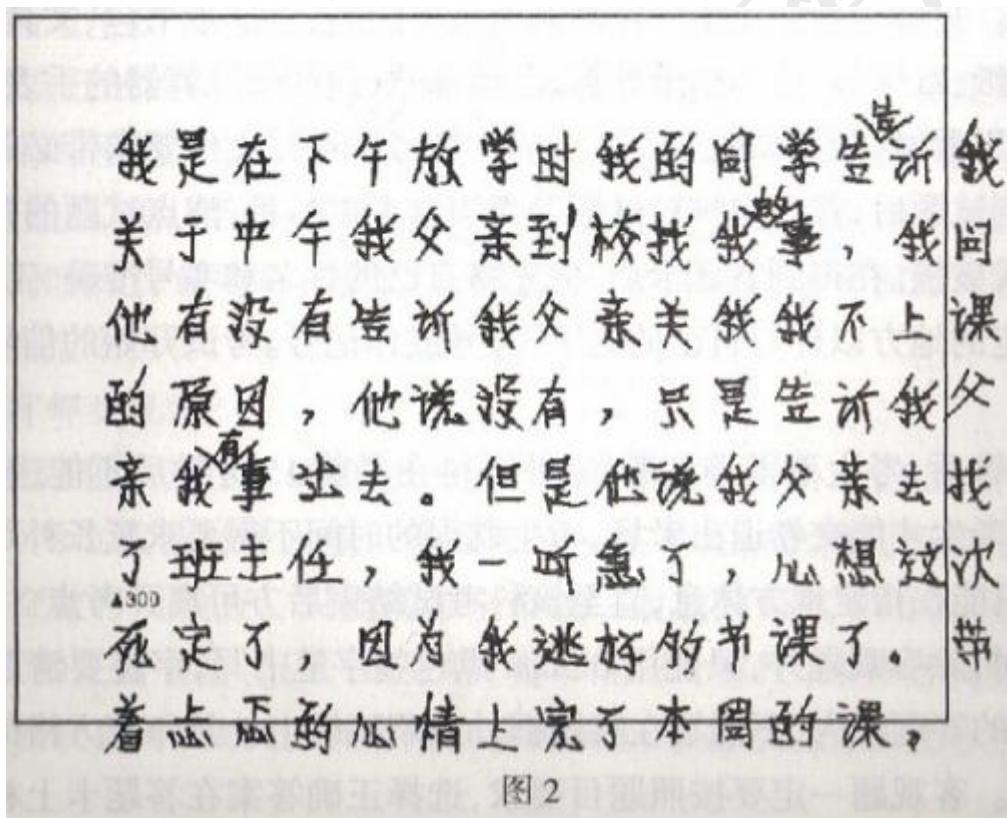 我是在下午放学时我的同学告诉我
关于中午我父亲到校找我事，我问
他有没有告诉我父亲关我我不上课
的原因，他说没有，只是告诉我父
亲我有事出去。但是他说我父亲去找
了班主任，我一听急了，心想这次
▲300
死定了，因为我逃节课了。带
着忐忑的心情上完了本周的课，
图2